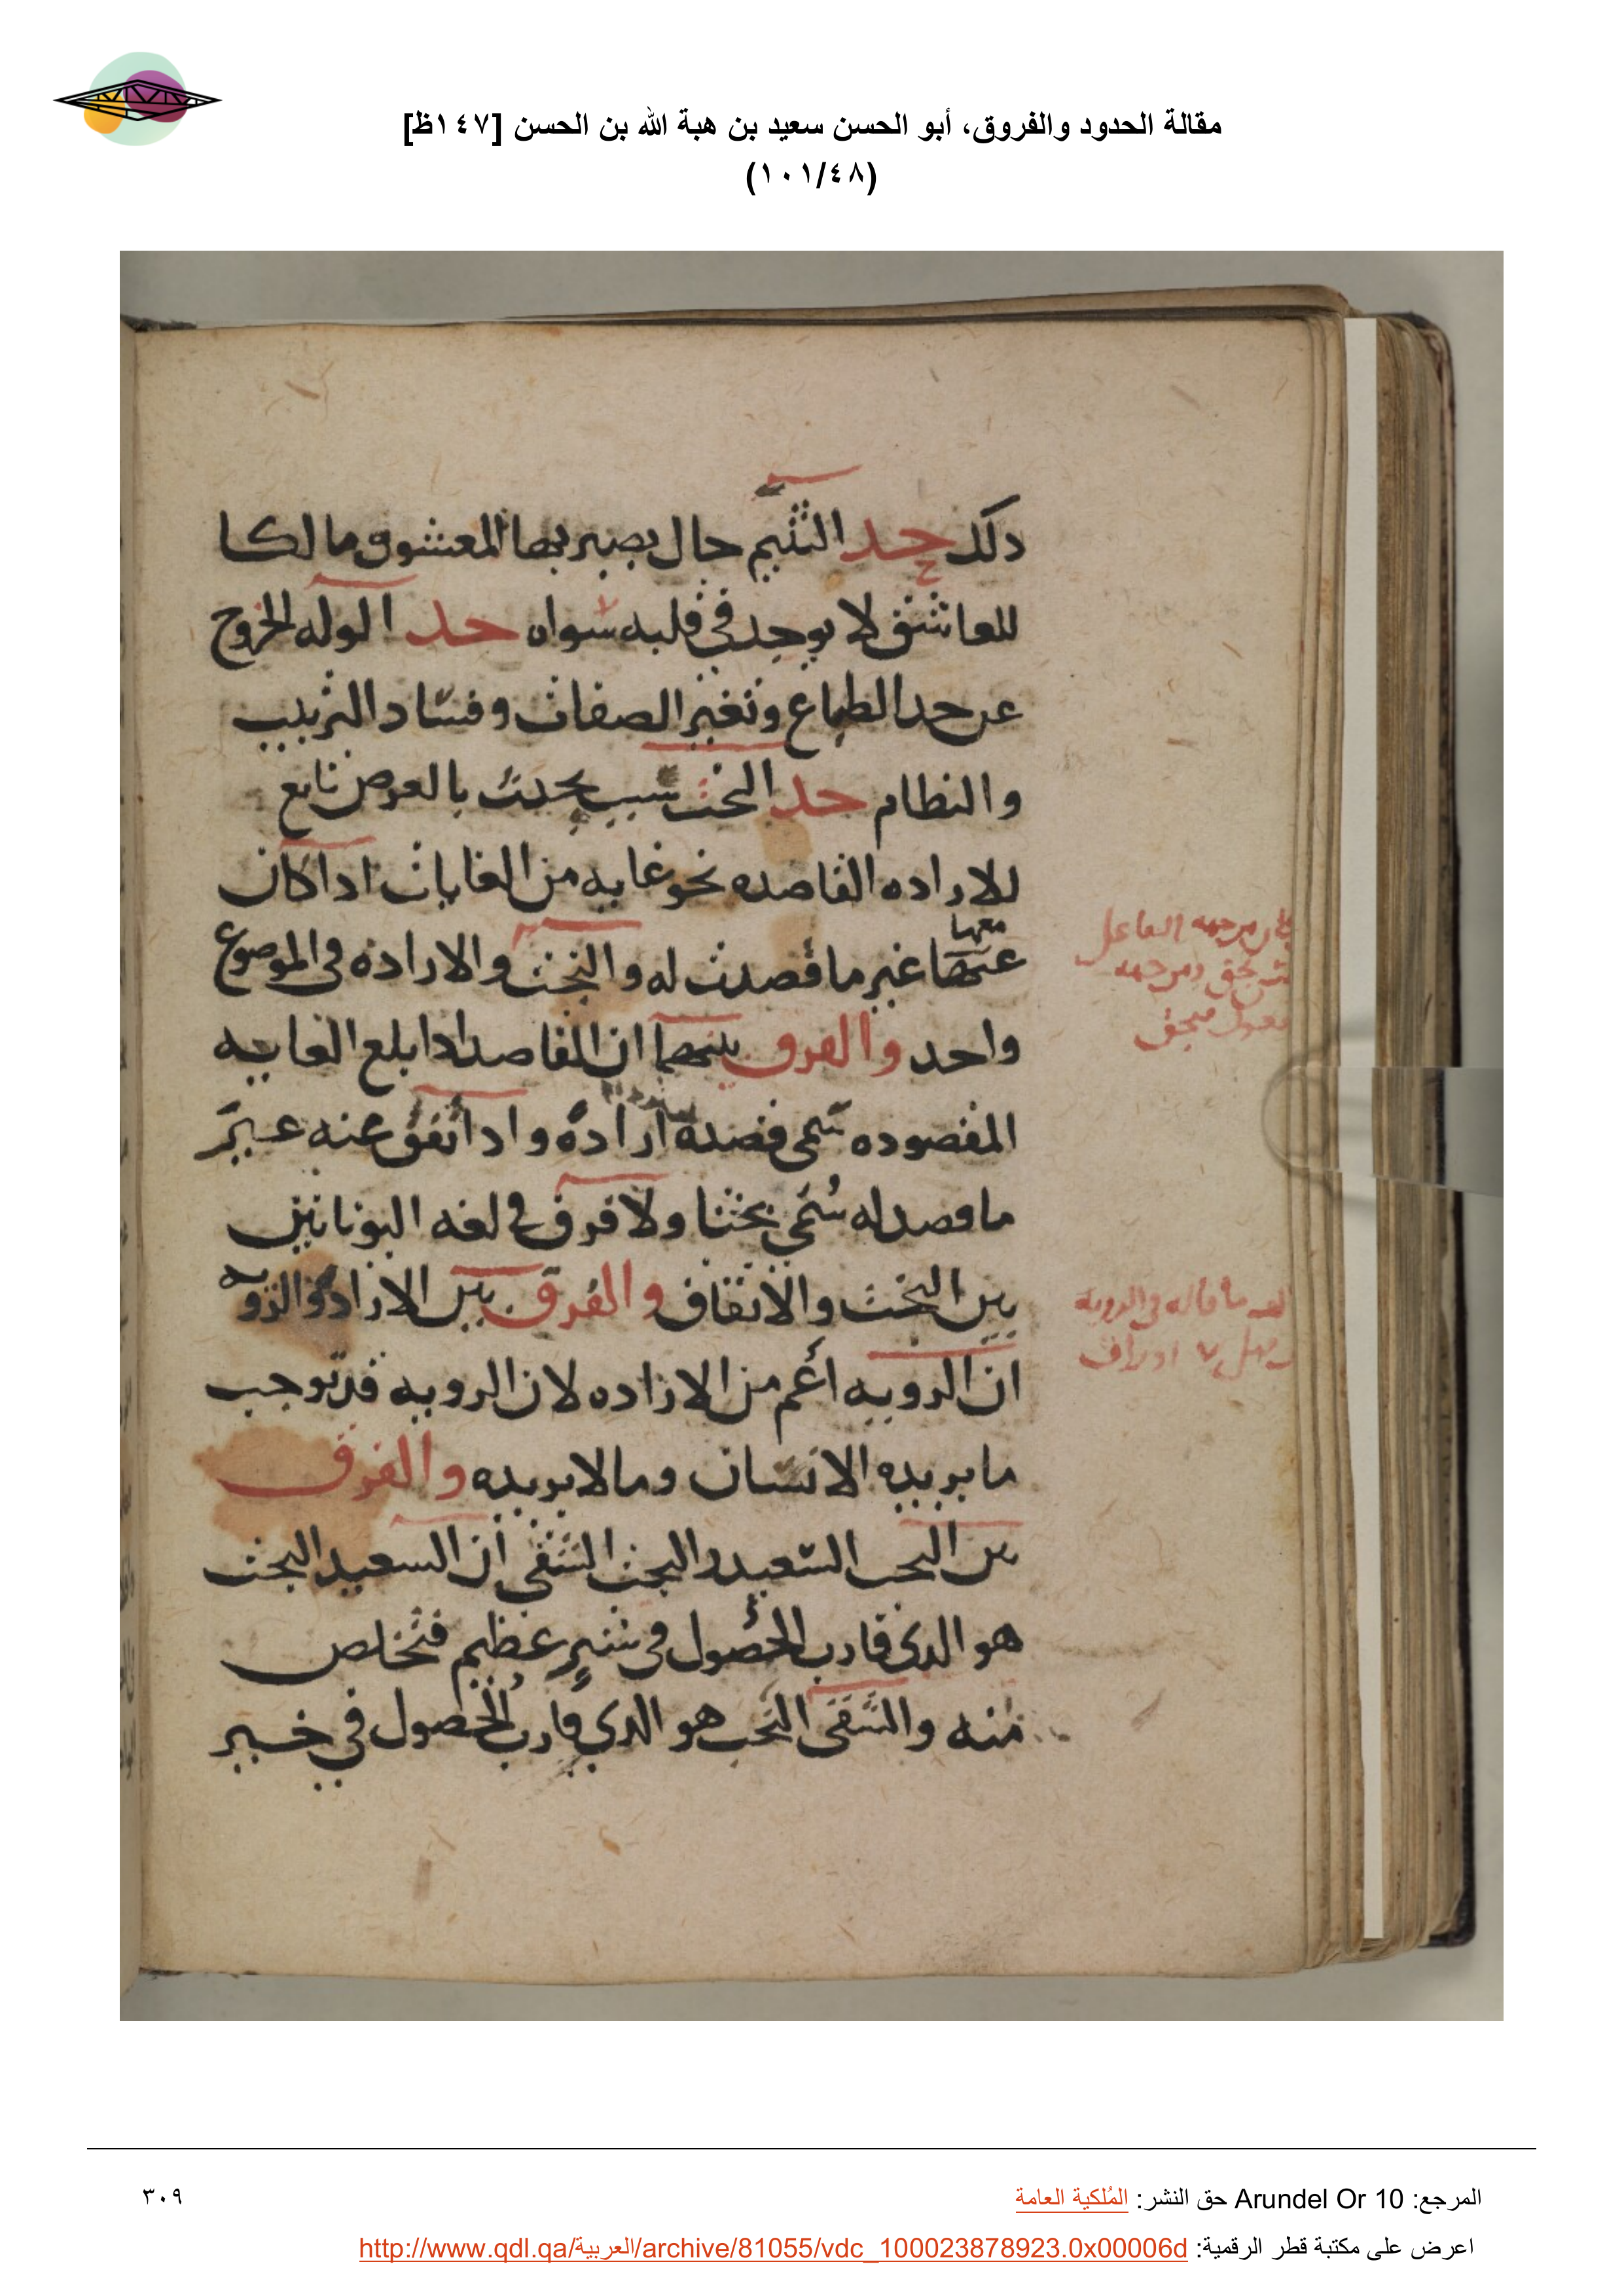 مقالة الحدود والفروق، أبو الحسن سعيد بن هبة الله بن الحسن [١٤٧ظ]
(١٠١/٤٨)
دلك حد التتيم حال يصير بها المعشوق مالكا
للعاشق لا يوجد في قلبه سواه حد الوله الخروج
عن حد الطباع وتغير الصفات وفساد الترتيب
والنظام حد البخت سبب يحدث بالعرض تابع
للاراده القاصده نحو غايه من الغايات ادا كان
معها
عنها غير ما قصدت له والبخت والاراده في الموضوع
واحد والفرق بينهما ان القاصد ادا بلغ الغايه
المقصوده سمى قصده اراده وادا اتفق عنه غير
ما قصد له سُمّي بختا ولا فرق في لغه اليونانين
بين البخت والاتفاق والفرق بين الاراده والرويه
ان الرويه أعم من الاراده لان الرويه قد توجب
ما يريده الانسان وما لا يريده والفرق
بين البخت السعيد والبخت الشقى أن السعيد البخت
هو الدى قارب الحصول في شر عظيم فتخلص
منه والشقى البخت هو الدي قارب الحصول في خير
من جهه الفاعل
ومن جهه
ما قاله في الرويه
اوراق
المرجع: Arundel Or 10 حق النشر: المُلكية العامة
٣٠٩
اعرض على مكتبة قطر الرقمية: http://www.qdl.qa/العربية/archive/81055/vdc_100023878923.0x00006d